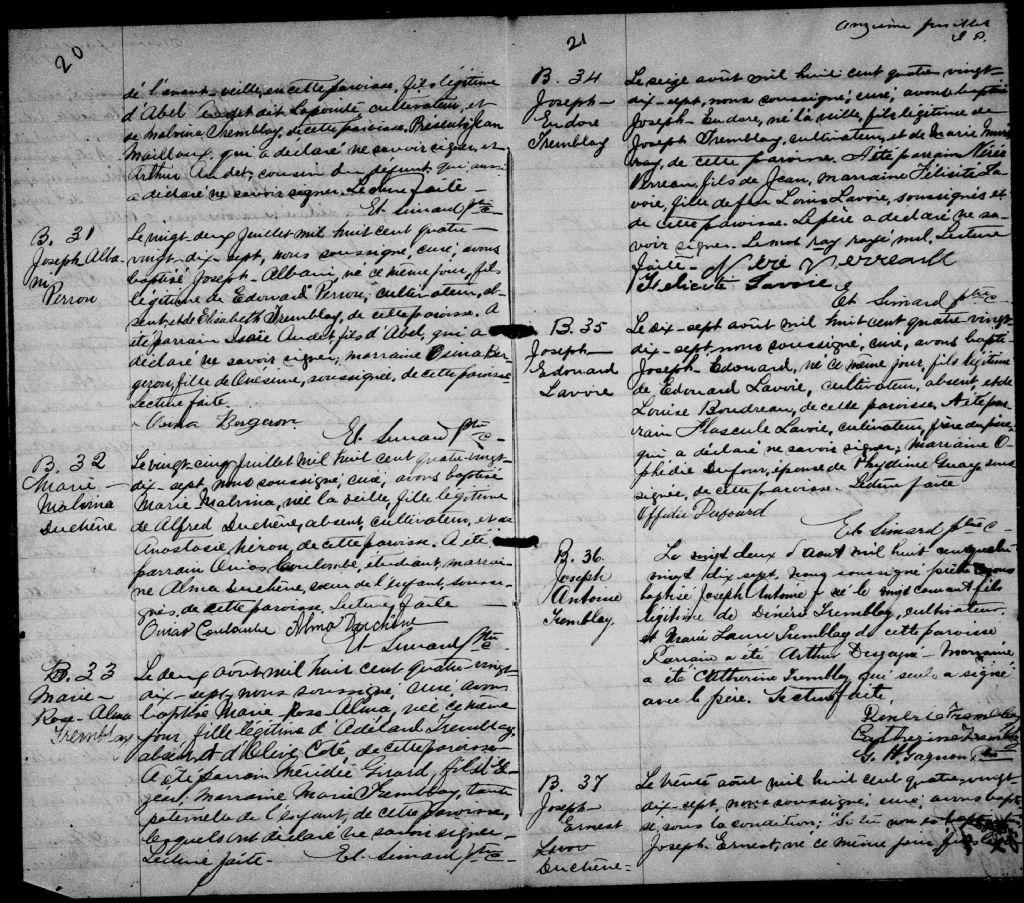 20
dé l'avant-veille, en cette paroisse, fils légitime
d'Abel Audet dit Lapointe, cultivateur, et
de Malvina Tremblay, de cette paroisse. Présents Jean
Mailloux, qui a déclaré ne savoir signer, et
Arthur Audet, cousin du défunt, qui aussi
a déclaré ne savoir signer. Lecture faite -
Et. Simard ptre c-
B. 31
Joseph Alba-
ni
Perron
Le vingt-deux Juillet mil huit cent quatre-
vingt-dix-sept, nous soussigné, curé, avons
baptisé Joseph-Albani, né ce même jour, fils
légitime de Edouard Perron, cultivateur, ab-
sent, et de Elisabeth Tremblay, de cette paroisse. A
été parrain Isaïe Audet, fils d'Abel, qui a
déclaré ne savoir signer, marraine Osina Ber-
geron, fille de Onésime, soussignée, de cette paroisse
Lecture faite
Et. Simard ptre c-
B. 32
Marie-
Malvina
Duchêne
Le vingt-cinq Juillet mil huit cent quatre-vingt-
dix-sept, nous soussigné, curé, avons baptisé
Marie Malvina, née la veille, fille légitime
de Alfred Duchêne, absent, cultivateur, et de
Anastasie Néron, de cette paroisse. A été
parrain Onias Coulombe, étudiant, marrai-
ne Alma Duchêne, sœur de l'enfant, soussi-
gnés, de cette paroisse. Lecture faite -
Onias Coulombe Alma Duchêne
Et. Simard ptre c-
B. 33
Marie-
Rose-Alma
Tremblay
Le deux août mil huit cent quatre-vingt-
dix-sept, nous soussigné, curé, avons
baptisé Marie Rose-Alma, née ce même
jour, fille légitime d'Adélard Tremblay,
absent et d'Olive Coté, de cette paroisse
A été parrain Méridée Girard, fils de
Marraine Marie Tremblay, tante
paternelle de l'enfant, de cette paroisse,
lesquels ont déclaré ne savoir signer-
Lecture faite- Et. Simard ptre c-
21
Onzième feuillet
B. 34
Joseph-
Eudore
Tremblay
Le seize août mil huit cent quatre vingt-
dix-sept, nous soussigné, curé, avons baptisé
Joseph-Eudore, né la veille, fils légitime de
Joseph Tremblay, cultivateur, et de Marie
de cette paroisse. A été parrain Néré
Verreau, fils de Jean, marraine Félicité La-
voie, fille de feu Louis Lavoie, soussignés et
de cette paroisse. Le père a déclaré ne sa-
voir signer. Le mot ray rayé nul. Lecture
faite- Néré Verreault
Félicité Lavoie
Et Simard ptre c-
B. 35
Joseph-
Edouard
Lavoie
Le dix-sept août mil huit cent quatre vingt-
dix-sept, nous soussigné, curé, avons bapti-
Joseph Edouard, né ce même jour, fils légitime
de Edouard Lavoie, cultivateur, absent, et de
Louise Boudreau, de cette paroisse. A été par-
rain Lavoie, cultivateur, frère du père
qui a déclaré ne savoir signer, marraine O-
phédie Dufour, épouse de Phydime Guay, sous
signée, de cette paroisse. Lecture faite
Offidie Dufourd
Et Simard ptre c-
B. 36.
Joseph
Antoine
Tremblay.
Le vingt deux d'aout mil huit cent quatre
vingt dix sept, nous soussigné prêtre avons
baptisé Joseph Antoine né le vingt courant fils
légitime de Tremblay, cultivateur
et Marie Laure Tremblay de cette paroisse
Parrain a été Arthur Desgagné - Marraine
a été Catherine Tremblay qui seule a signé
avec le père. Lecture faite.
Tremblay
Catherine Tremblay
G. H. Gagnon Ptre
B. 37
Joseph-
Ernest
Duchêne-
Le trente août mil huit cent quatre-vingt-
dix-sept, nous soussigné, curé, avons bapti-
sé, sous la condition; "Si tu non
Joseph Ernest, né ce même jour, fils